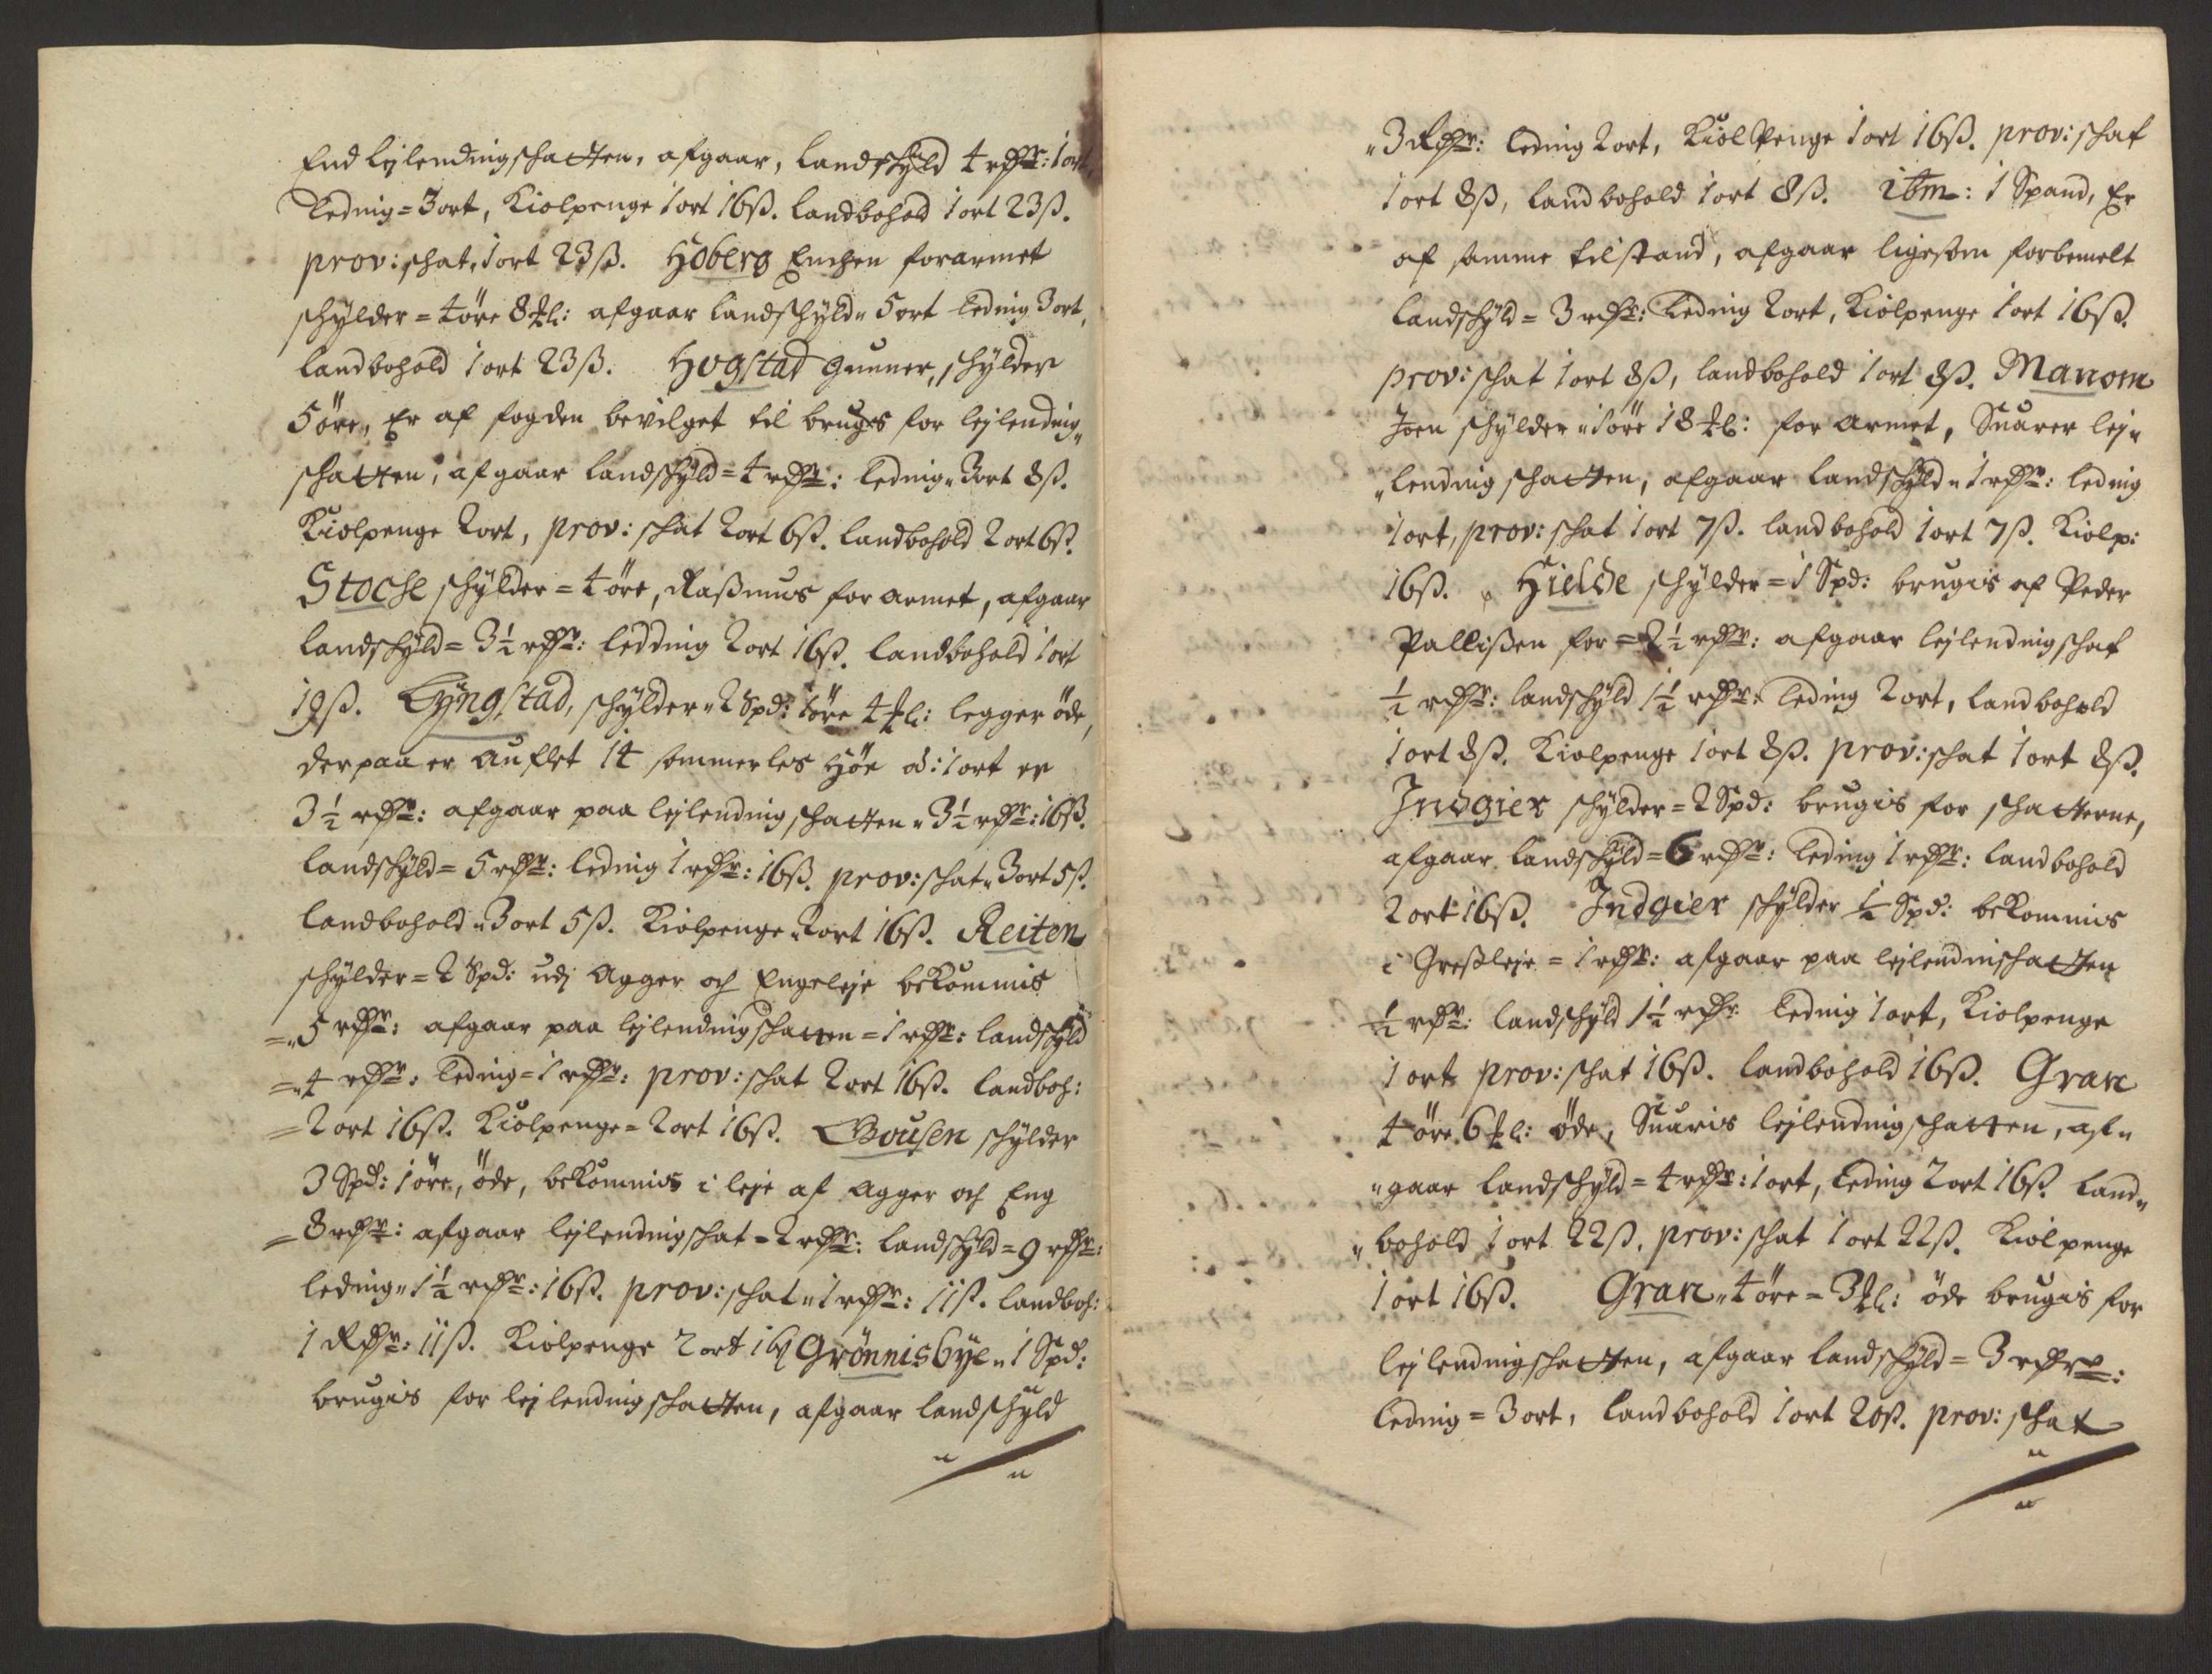 End lejlendingschatten, afgaar, landschÿld 4 rdr: 1 ort,
Leding = 3 ort, Kiolpenge 1 ort 16ß. landbohold 1 ort 23ß.
prov: schat, 1 ort 23ß. Hoberg Enchen forarmet
schÿlder = 4 öre 8 ℔: afgaar landschÿld „ 5 ort leding 3 ort,
landbohold 1 ort 23ß. Hogstad Gunner, schÿlder
5 öre „ Er af fogden bevilget til brugs for lejlending„
schatten, afgaar landschÿld = 4 rdr: leding „ 3 ort 8ß.
Kiolpenge 2 ort, prov: schat 2 ort 6ß. landbohold 2 ort 6ß.
Stoche schÿlder = 4 öre, Rasmus for armet, afgaar
landschÿld = 3½ rdr: ledding 2 ort 16ß. landbohold 1 ort
19ß. Lÿngstad, schÿlder „ 2 Spd: 1 öre 4 ℔: legger öde,
derpaa er auflet 14 sommerles Höe ad: 1 ort er
3½ rdr: afgaar paa lejlending schatten „ 3½ rdr: 16ß.
landschÿld = 5 rdr: leding 1 rdr: 16ß. prov: schat „ 3 ort 5ß.
landbohold „ 3 ort 5ß. Kiolpenge „ 2 ort 16ß. Reiten
schÿlder = 2 Spd: udj Agger och Engeleje bekommis
=„ 5 rdr: afgaar paa lejlending schatten = 1 rdr: landschÿld
=„ 4 rdr: leding = 1 rdr: prov: schat 2 ort 16ß. landboh:
= 2 ort 16ß. Kiolpenge = 2 ort 16ß. Gousen schÿlder
3 Spd: 1 öre, öde, bekommis i leje af Agger och Eng
= 8 rdr: afgaar lejlendingschat = 2 rdr: landschÿld = 9 rdr:
leding „ 1½ rdr: 16ß. prov: schat „ 1 rdr: 11ß. landboh:
1 Rdr: 11ß. Kiolpenge 2 ort 16ß Grönnisbÿe „ 1 Spd:
brugis for lejlending schatten, afgaar landschÿld
„ 3 Rdr: leding 2 ort, Kiolpenge 1 ort 16ß. prov: schat
1 ort 8ß, landbohold 1 ort 8ß. itm: 1 Spand, Er
af samme tilstand, afgaar ligesom forbemelt
landschÿld = 3 rdr: leding 2 ort, Kiolpenge 1 ort 16ß.
prov: schat 1 ort 8ß, landbohold 1 ort 8ß. Manom
Joen schÿlder „ 1 öre 18 ℔: for armet, Suarer lej„
„lending schatten, afgaar landschÿld „ 1 rdr: leding
1 ort, prov: schat 1 ort 7ß. landbohold 1 ort 7ß. Kiolp:
16ß. Hielde schÿlder = 1 Spd: brugis af Peder
Pallisen for = 2½ rdr: afgaar lejlendingschat
½ rdr: landschÿld 1½ rdr: leding 2 ort, landbohold
1 ort 8ß. Kiolpenge 1 ort 8ß. prov: schat 1 ort 8ß.
Indgier schÿlder = 2 Spd: brugis for schatterne,
afgaar landschÿld = 6 rdr: leding 1 rdr: landbohold
2 ort 16ß. Indgier schÿlder ½ Spd: bekommis
i Gressleje = 1 rdr: afgaar paa lejlendinschatten
½ rdr: landschÿld 1½ rdr leding 1 ort, Kiolpenge
1 ort prov: schat 16ß. landbohold 16ß. Gran
4 öre 6 ℔: öde, Suaris lejlending schatten, af„
„gaar landschÿld = 4 rdr: 1 ort, leding 2 ort 16ß. land„
„bohold 1 ort 22ß, prov: schat 1 ort 22ß. Kiolpenge
1 ort 16ß. Gran „ 4 öre = 3 ℔: öde brugis for
lejlendingschatten, afgaar landschÿld = 3 rdr:
leding = 3 ort, landbohold 1 ort 20ß. prov: schat